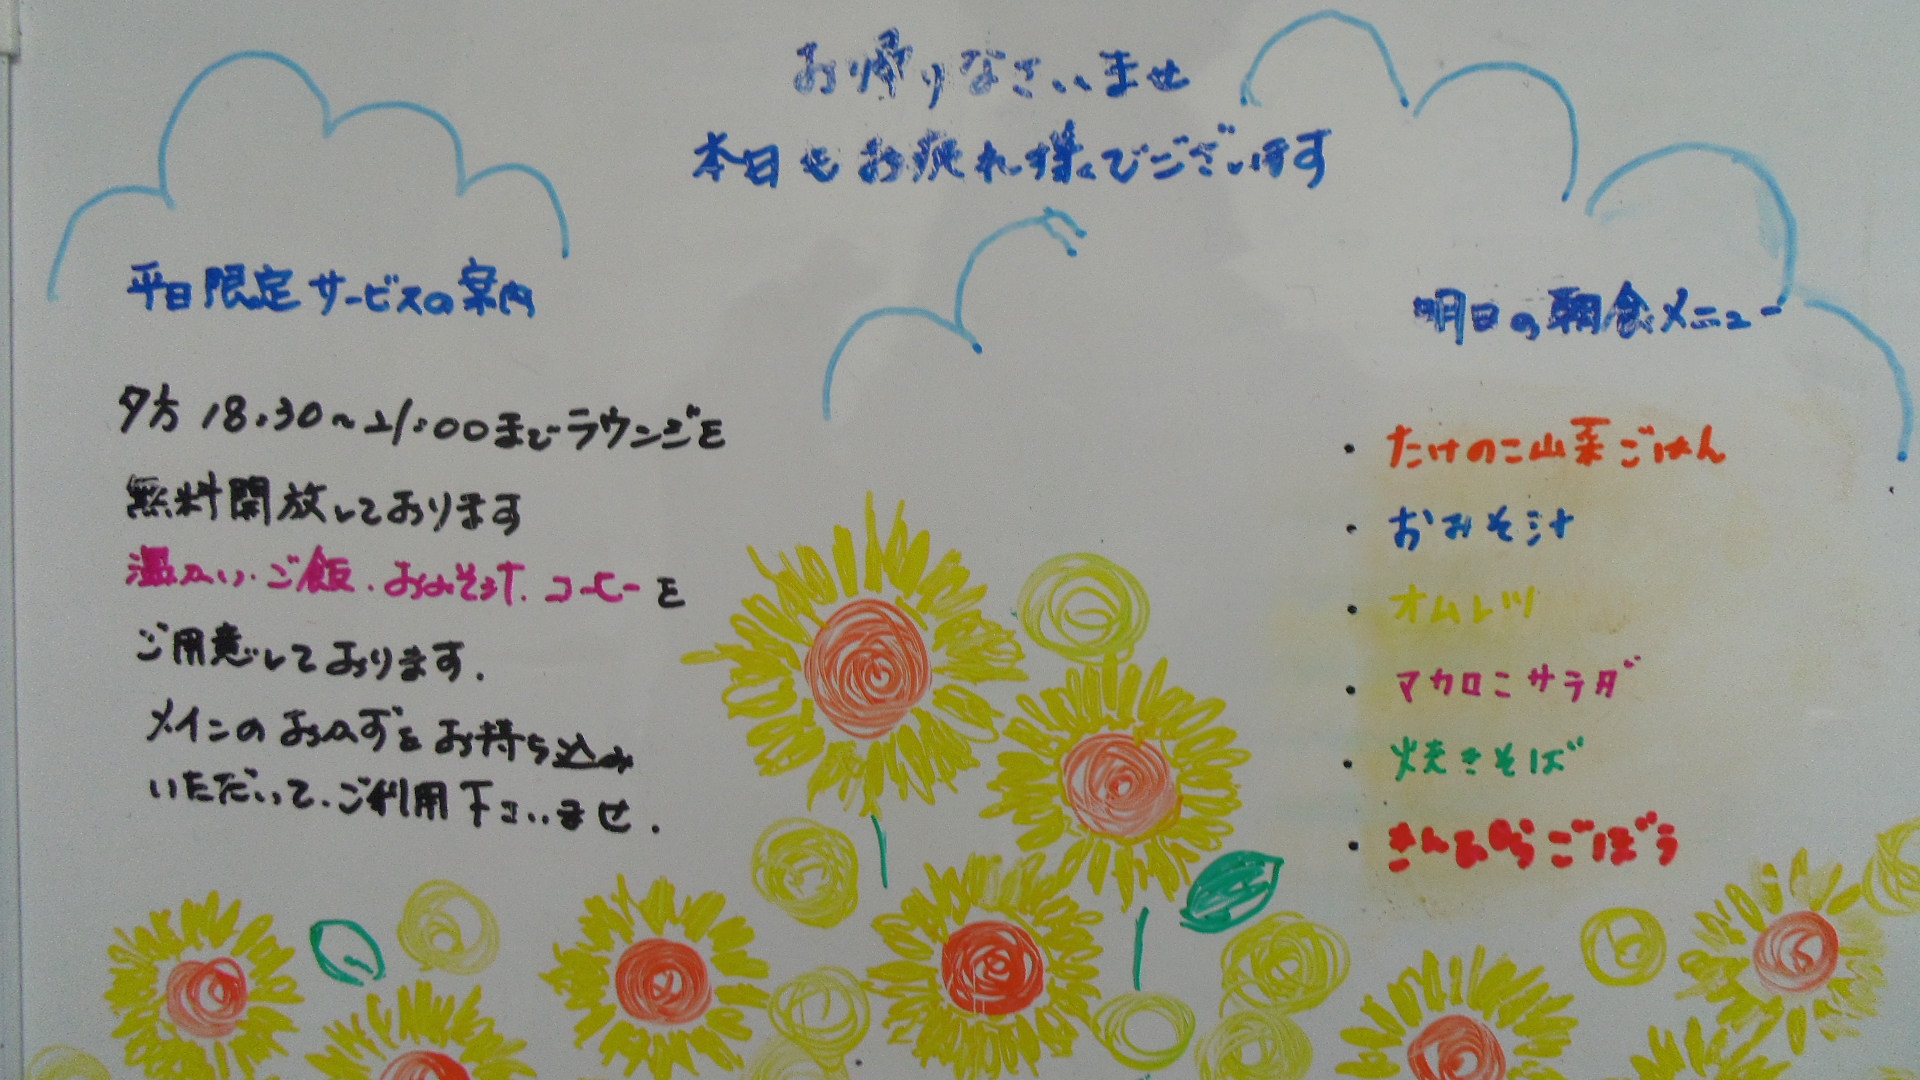 お帰りなさいませ
本日もお疲れ様でございます
平日限定サービスの案内
夕方 18:30~21:00までラウンジを
無料開放しております
温かい・ご飯・おみそ汁・コーヒーを
ご用意しております.
メインのおかずをお持ち込み
いただいて、ご利用下さいませ.
明日の朝食メニュー
・たけのこ山菜ごはん
・おみそ汁
・オムレツ
・マカロニサラダ
・焼きそば
・きんぴらごぼう